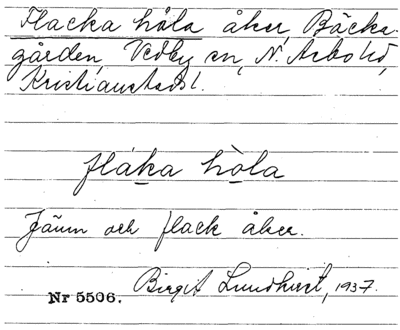 Flacka höla åker, Bäcka-
gården, Vedby sn, N. Åsbo hd,
Kristianstads l.
flaka hola
Jämn och flack åker.
Birgit Lundkvist, 1937.
Nr 5506.